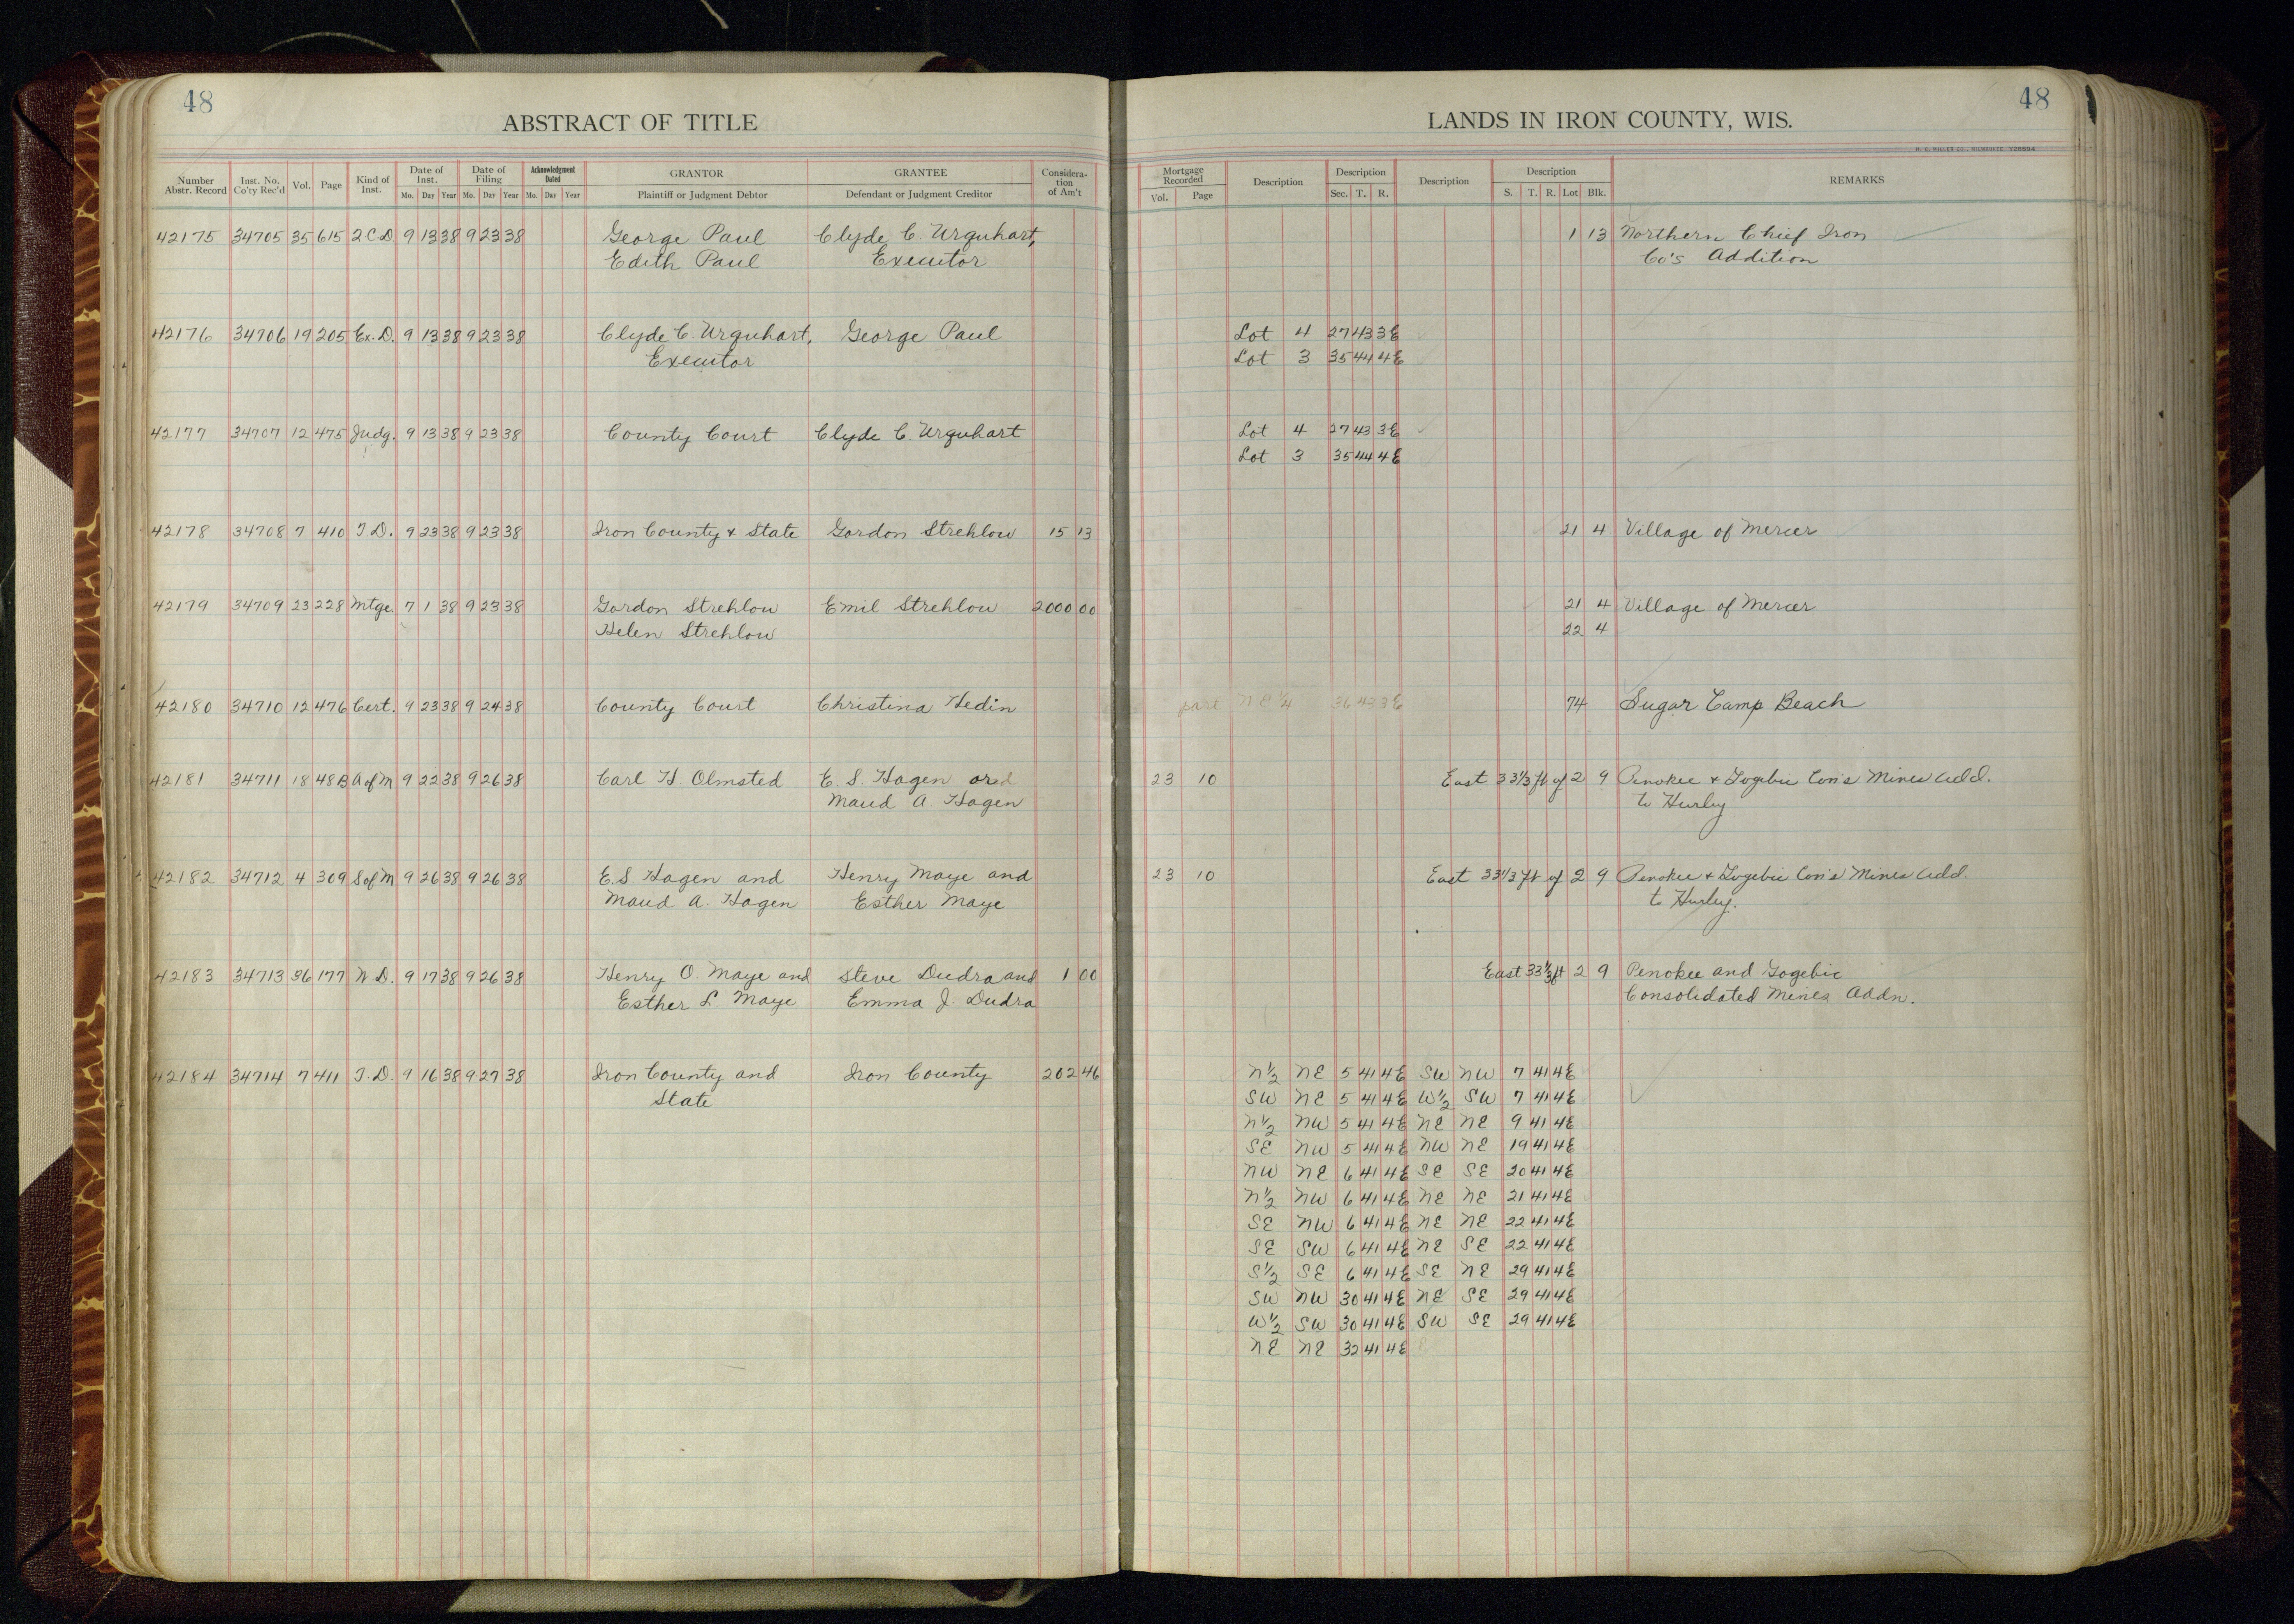 48
ABSTRACT OF TITLE
Number Abstr. Record | Inst. No. Co'ty Rec'd | Vol. | Page | Kind of Inst. | Date of Inst. Mo. Day Year | Date of Filing Mo. Day Year | Acknowledgment Dated Mo. Day Year | GRANTOR Plaintiff or Judgment Debtor | GRANTEE Defendant or Judgment Creditor | Consideration of Am't
42175 34705 35 615 2 C.D 9 13 38 9 23 38 George Paul Clyde C. Urquhart,
Edith Paul Executor
42176 34706 19 205 Ex. D. 9 13 38 9 23 38 Clyde C. Urquhart, George Paul
Executor
42177 34707 12 475 Judg. 9 13 38 9 23 38 County Court Clyde C. Urquhart
42178 34708 7 410 T.D. 9 23 38 9 23 38 Iron County & State Gordon Strehlow 15 13
42179 34709 23 228 Mtge. 7 1 38 9 23 38 Gordon Strehlow Emil Strehlow 2000 00
Helen Strehlow
42180 34710 12 476 Cert. 9 23 38 9 24 38 County Court Christina Hedin
42181 34711 18 48B A of M 9 22 38 9 26 38 Carl H Olmsted E. S. Hagen and
Maud A. Hagen
42182 34712 4 309 S of M 9 26 38 9 26 38 E. S. Hagen and Henry Maye and
Maud A. Hagen Esther Maye
42183 34713 36 177 W.D. 9 17 38 9 26 38 Henry O. Maye and Steve Dudra and 1 00
Esther L. Maye Emma J. Dudra
42184 34714 7 411 T.D. 9 16 38 9 27 38 Iron County and Iron County 202 46
State
48
LANDS IN IRON COUNTY, WIS.
H. C. MILLER CO., MILWAUKEE
Mortgage Recorded Vol. Page | Description | Description Sec. T. R. | Description | Description S. T. R. Lot Blk. | REMARKS
1 13 Northern Chief Iron
Co's Addition
Lot 4 27 43 3E
Lot 3 35 44 4E
Lot 4 27 43 3E
Lot 3 35 44 4E
21 4 Village of Mercer
21 4 Village of Mercer
22 4
part NE 1/4 36 43 3E 74 Sugar Camp Beach
23 10 East 33 1/3 ft of 2 9 Penokee & Gogebic Con's Mines Add.
to Hurley
23 10 East 33 1/3 ft of 2 9 Penokee & Gogebic Con's Mines Add.
to Hurley.
East 33 1/3 ft 2 9 Penokee and Gogebic
Consolidated Mines Addn.
N 1/2 NE 5 41 4E SW NW 7 41 4E
SW NE 5 41 4E W 1/2 SW 7 41 4E
N 1/2 NW 5 41 4E NE NE 9 41 4E
SE NW 5 41 4E NW NE 19 41 4E
NW NE 6 41 4E SE SE 20 41 4E
N 1/2 NW 6 41 4E NE NE 21 41 4E
SE NW 6 41 4E NE NE 22 41 4E
SE SW 6 41 4E NE SE 22 41 4E
S 1/2 SE 6 41 4E SE NE 29 41 4E
SW NW 30 41 4E NE SE 29 41 4E
W 1/2 SW 30 41 4E SW SE 29 41 4E
NE NE 32 41 4E